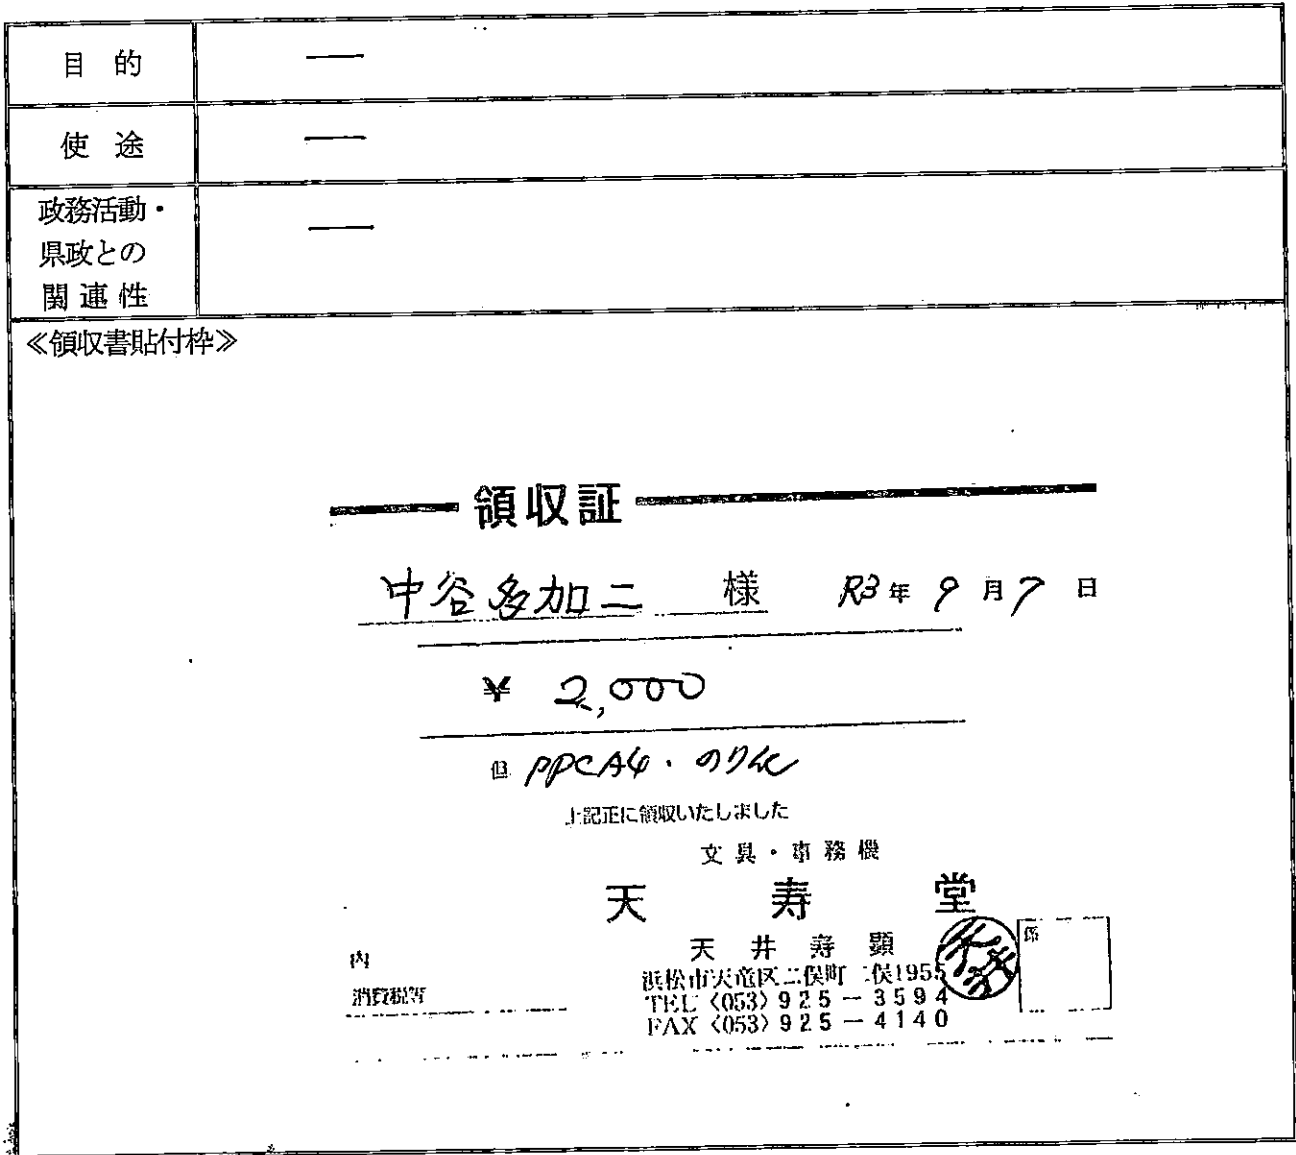 目的 ―
使途 ―
政務活動・
県政との ―
関連性
≪領収書貼付枠≫
領収証
中谷多加二 様 R3年 9月7日
¥ 2,000
但 PPCA4・のり他
上記正に領収いたしました
文具・事務機
天寿堂
天井寿顕
内
消費税等
浜松市天竜区二俣町二俣1955
TEL〈053〉925-3594
FAX〈053〉925-4140
係
天井